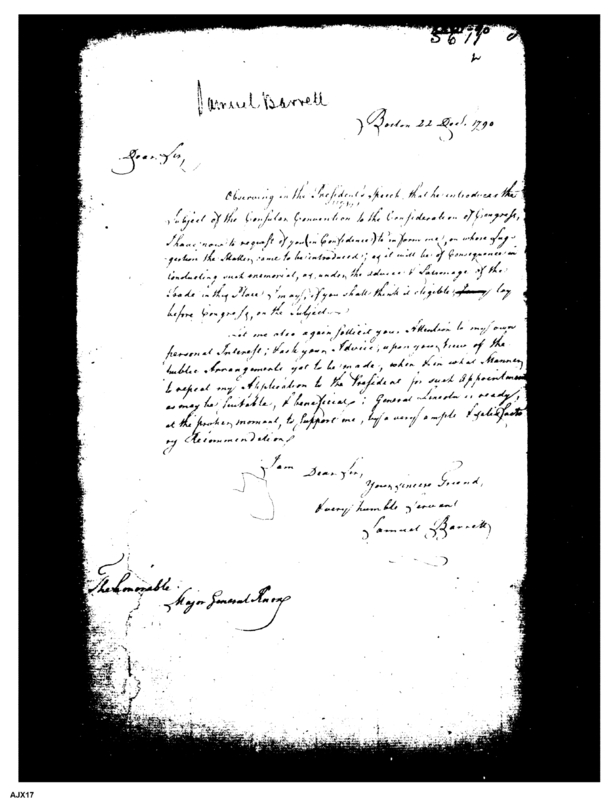 Samuel Barrett
Boston 22 Decr. 1790
Dear Sir,
Observing in the President's Speech, that he introduces the
Subject of the Consular Convention to the Consideration of Congress,
I have now to request of you (in Confidence) to inform me, on whose Sug-
gestion the Matter came to be introduced; as it will be of Consequence in
conducting such memorial, as, under the advice & Patronage of the
Trade in this Place I may, if you shall think it eligible, lay
before Congress, on the Subject.
Let me also again sollicit your Attention to my own
personal Interest; & ask your Advice, upon your View of the
public Arrangements yet to be made, when & in what Manner
to repeat my Application to the President for such Appointment
as may be suitable, & beneficial; General Lincoln is ready,
at the proper moment, to support me, by a very ample & satisfacto
ry Recommendation.
I am Dear Sir,
Your sincere Friend,
& very humble Servant
Samuel Barrett
The Honorable
Major General Knox
AJX17